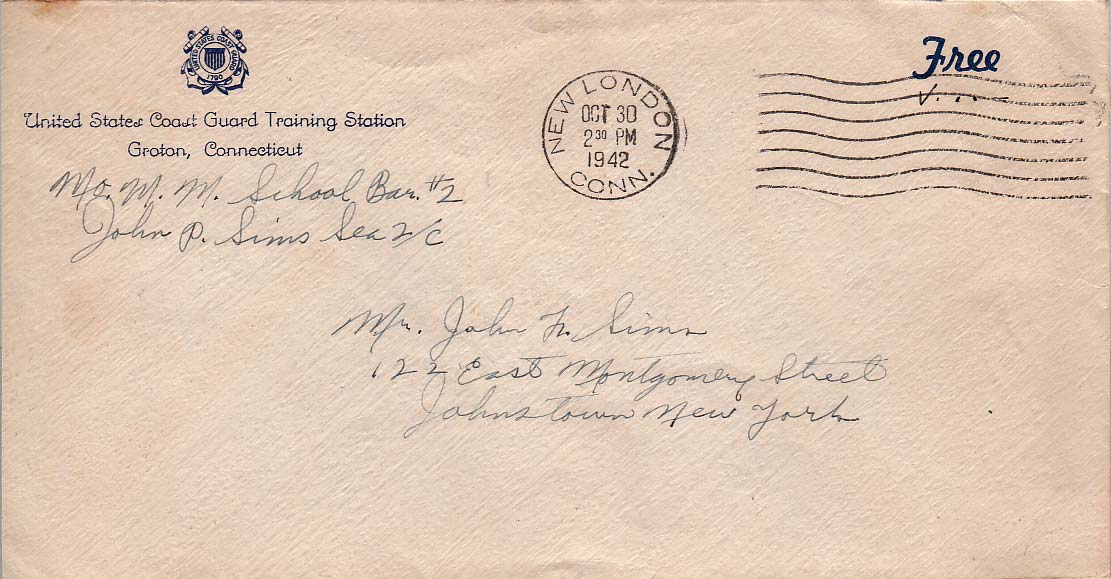 UNITED STATES COAST GUARD
1790
United States Coast Guard Training Station
Groton, Connecticut
Mo. M. M. School Bar. #2
John P. Sims Sea 2/C
NEW LONDON
OCT 30
2 30 PM
1942
CONN.
Free
Mr. John H. Sims
122 East Montgomery Street
Johnstown New York